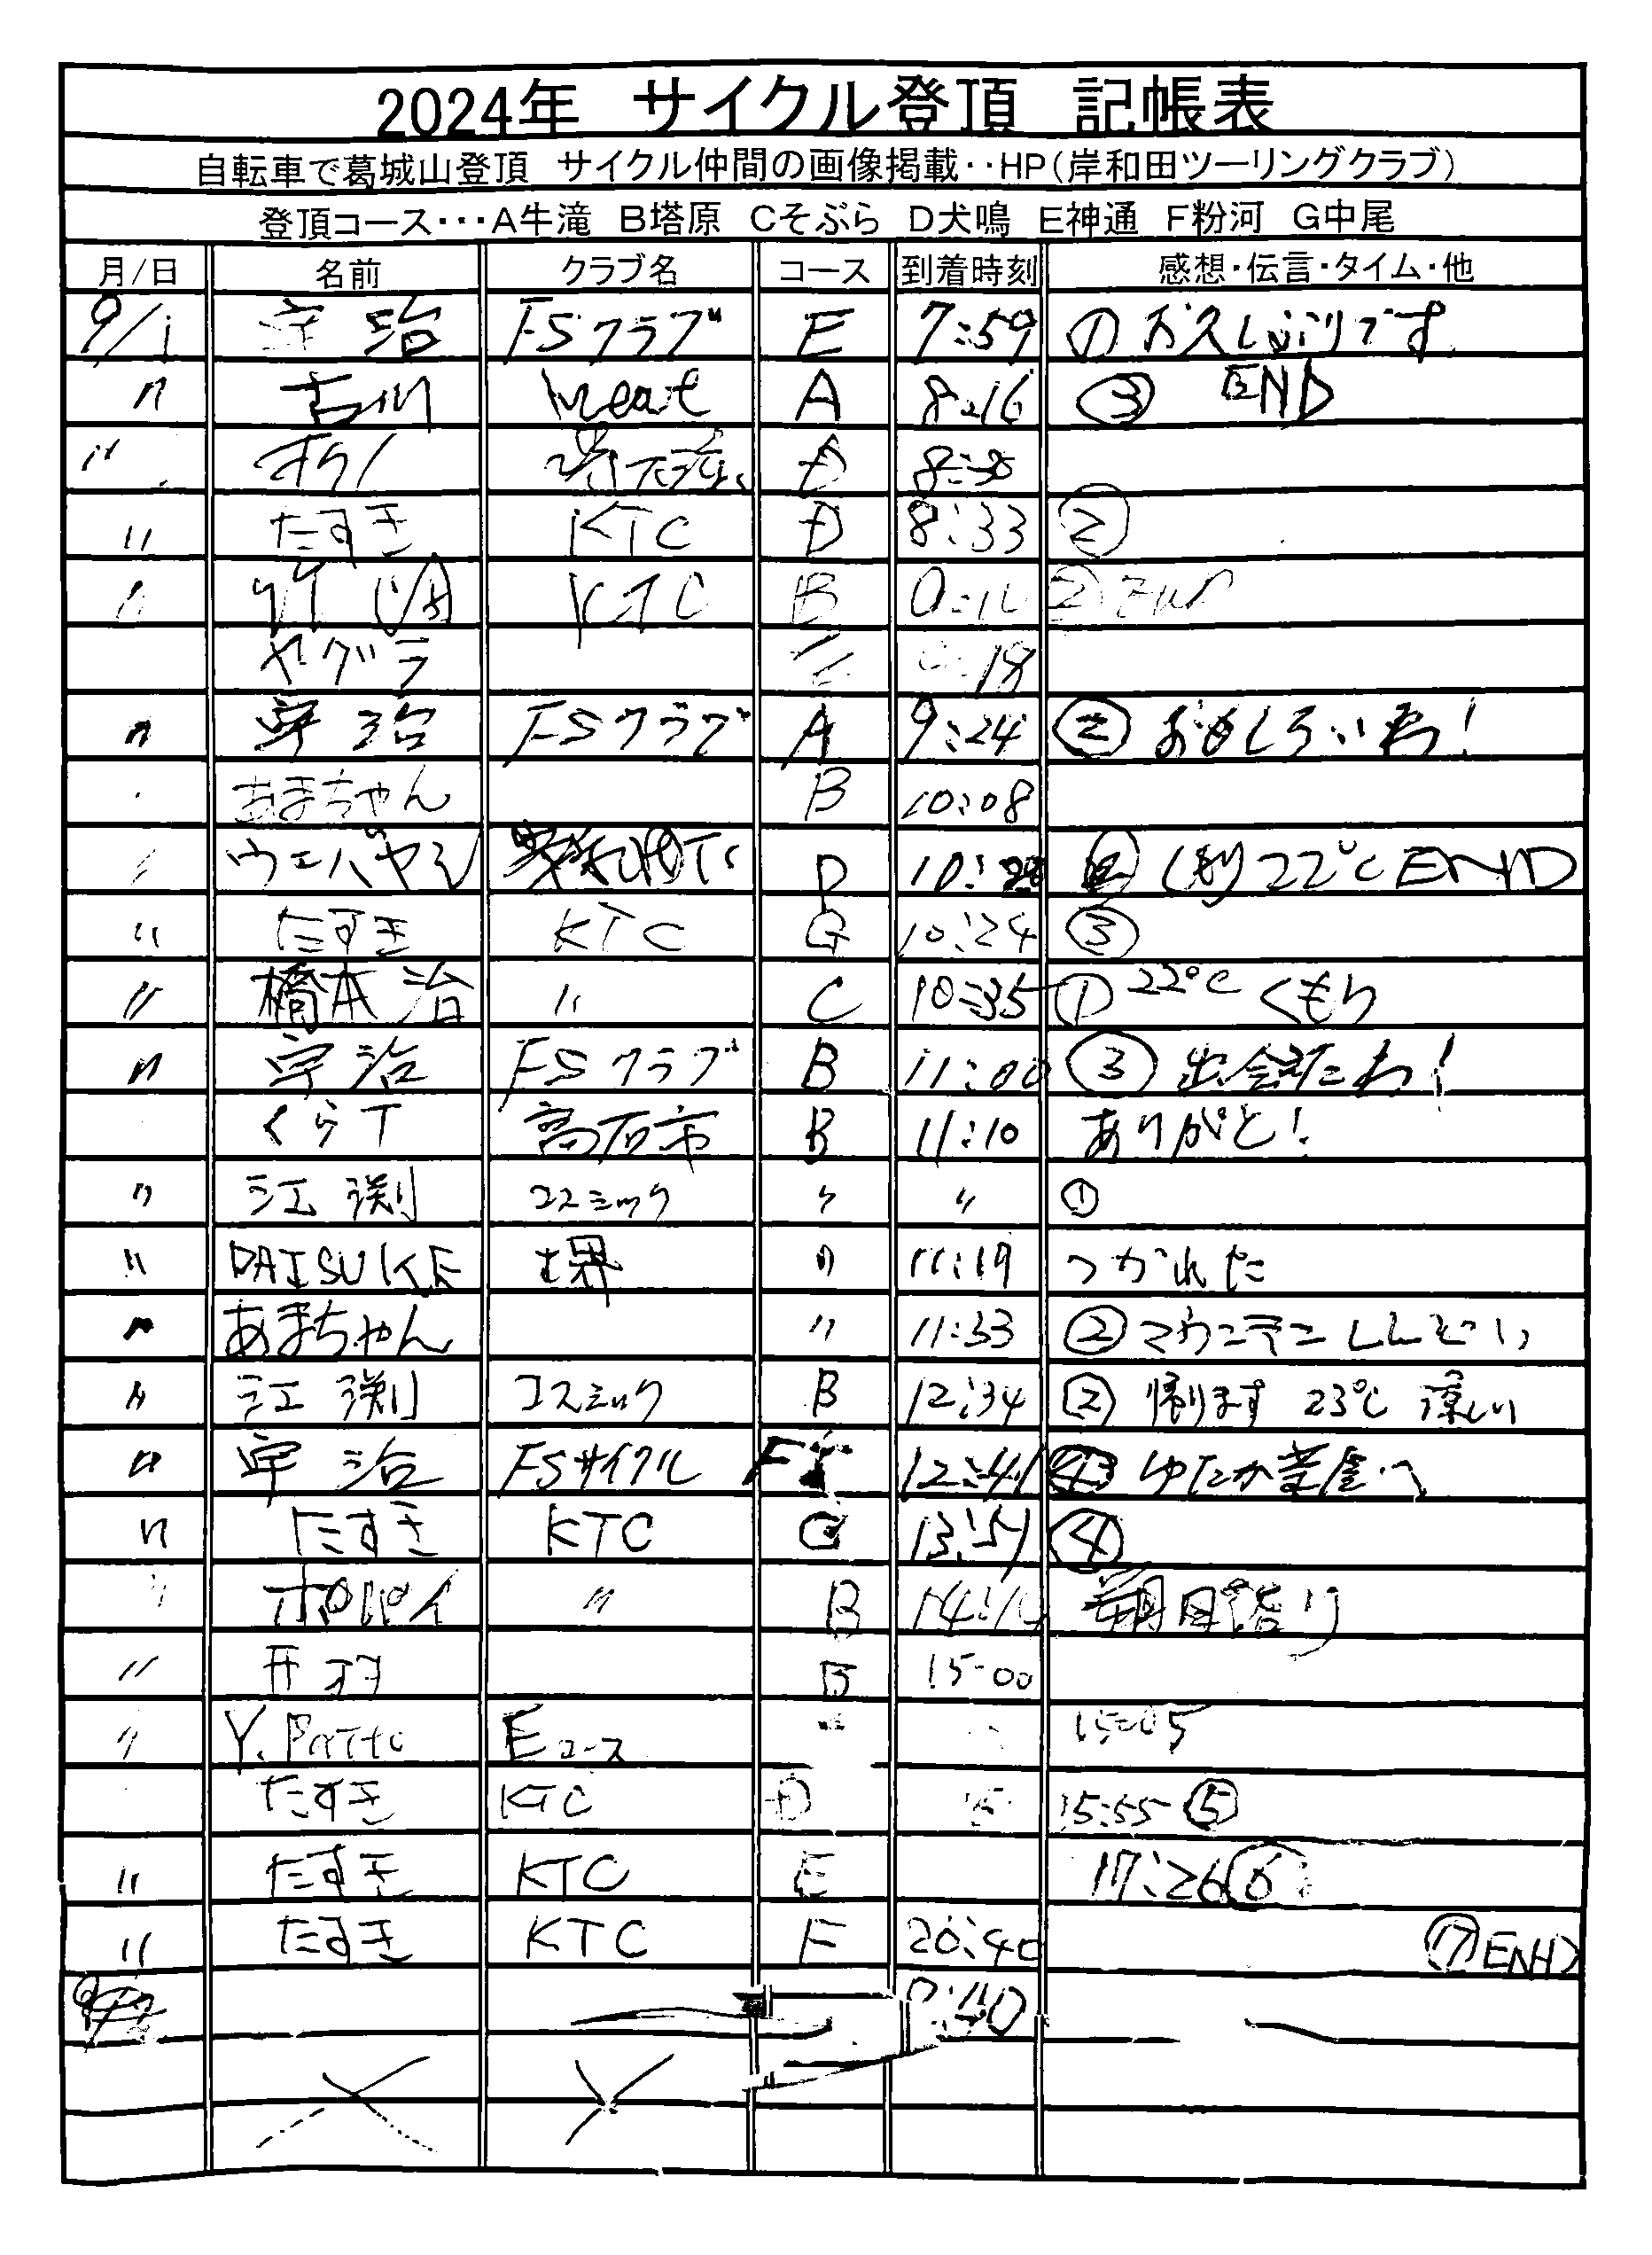 2024年 サイクル登頂 記帳表
自転車で葛城山登頂 サイクル仲間の画像掲載‥HP(岸和田ツーリングクラブ)
登頂コース・・・A牛滝 B塔原 Cそぶら D犬鳴 E神通 F粉河 G中尾
月/日 名前 クラブ名 コース 到着時刻 感想・伝言・タイム・他
9/1 宇治 FSクラブ E 7:59 ① お久しぶりです
〃 古川 Meat A 8:16 ③ END
〃 D
〃 たすき KTC D 8:33 ②
〃 KTC B ②
ヤグラ 18
〃 宇治 FSクラブ A 9:24 ② おもしろいわ!
あまちゃん B 10:08
ウエバヤシ D 10:28 ② くもり 22℃ END
〃 たすき KTC G 10:24 ③
〃 橋本 治 〃 C 10:35 ① 22℃ くもり
〃 宇治 FSクラブ B 11:00 ③ 出会えたわ!
くらT 高石市 B 11:10 ありがと!
〃 江渕 コスミック 〃 〃 ①
〃 DAISUKE 堺 〃 11:19 つかれた
〃 あまちゃん 〃 11:33 ② マウンテン しんどい
〃 江渕 コスミック B 12:34 ② 帰ります 23℃ 涼しい
〃 宇治 FSサイクル F 12:41 ④ ゆたか茶屋へ
〃 たすき KTC G 13:51 ④
〃 ポパイ 〃 B 朔日詣り
〃 15:00
〃 Eコース 15:05
たすき KTC D 15:55 ⑤
〃 たすき KTC E 17:26 ⑥
〃 たすき KTC F 20:40 ⑦ END